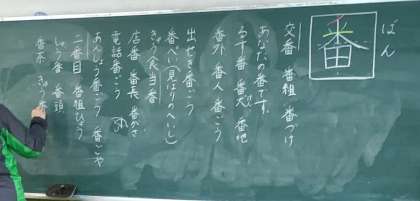 ばん
番
交番 番組 番づけ
あなたの番です。
るす番 番犬 番地
番外 番人 番ごう
出せき番ごう
番ぺい(見はりのへいし)
きゅう食当番
店番 番長 番がさ
電話番ごう
あんしょう番ごう 番ごや
二番目 番組ひょう
しゅう番 番頭
番茶